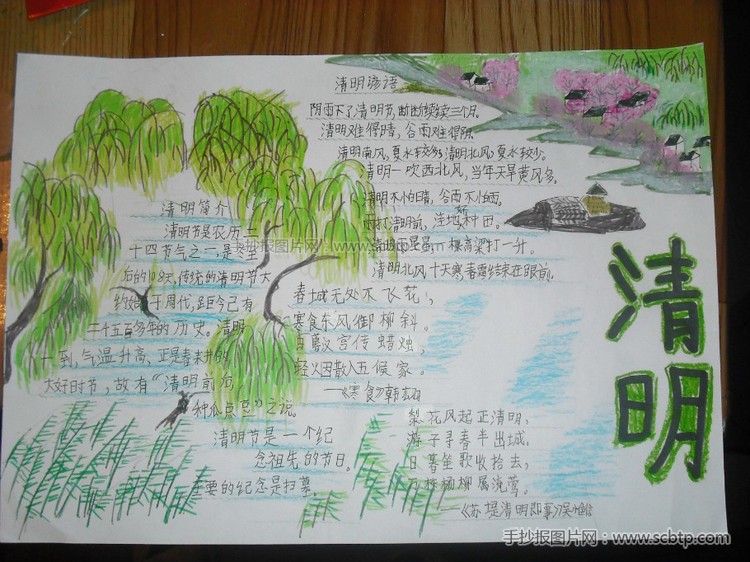 清明谚语
阴雨下了清明节,断断续续三个月。
清明难得晴,谷雨难得阴。
清明南风,夏水较多;清明北风,夏水较少。
清明一吹西北风,当年天旱黄风多。
清明不怕晴,谷雨不怕雨。
雨打清明前,洼地好种田。
清明雨星星,一棵高粱打一升。
清明北风十天寒,春霜结束在眼前。
清明简介
清明节是农历二
十四节气之一,是冬至
后的108天,传统的清明节大
约始于周代,距今已有
二千五百多年的历史。清明
一到,气温升高,正是春耕的
大好时节,故有“清明前后
种瓜点豆”之说。
清明节是一个纪
念祖先的节日。
主要的纪念是扫墓。
春城无处不飞花,
寒食东风御柳斜。
日暮汉宫传蜡烛,
轻烟散入五侯家。
——《寒食》韩
梨花风起正清明,
游子寻春半出城。
日暮笙歌收拾去,
万株杨柳属流莺。
——《苏堤清明即事》吴惟信
清明
手抄报图片网:www.scbtp.com